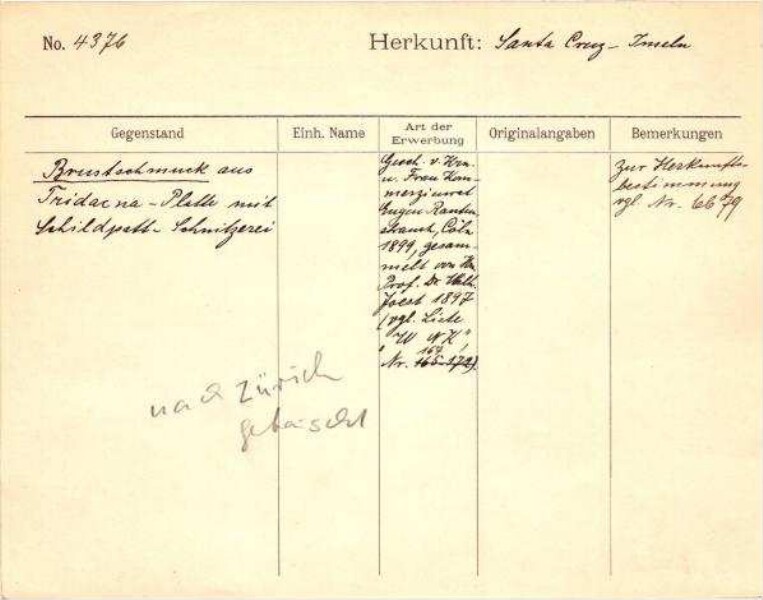 No. 4376
Herkunft: Santa Cruz - Inseln
Gegenstand
Einh. Name
Art der
Erwerbung
Originalangaben
Bemerkungen
Brustschmuck aus
Tridacna - Platte mit
Schildpatt - Schnitzerei
Gesch. v. Hrn.
u. Frau Kom-
merzienrat
Eugen Rauten-
strauch, Cöln
1899, gesam-
melt von Hn.
Prof. Dr. Wilh.
Joest 1897
(vgl. Liste
"W N K"
167
Nr. 165-172)
zur Herkunfts-
bestimmung
vgl. Nr. 6679
nach Zürich
getauscht